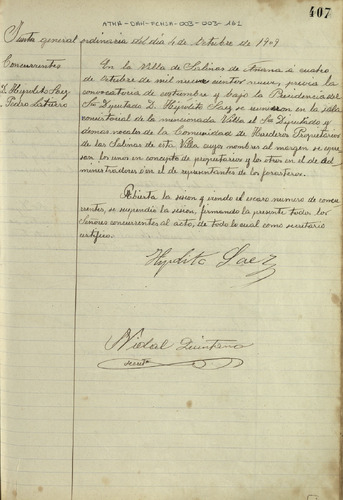 ATHA-DAH-FCHSA-003-003-162
407
Junta general ordinaria del dia 4 de Octubre de 1909
Concurrentes
D. Hipolito Saez
Pedro
En la Villa de Salinas de Añana a cuatro
de Octubre de mil nuevecientos nueve, previa la
convocatoria de costumbre y bajo la Presidencia del
Sr. Diputado D. Hipolito Saez se reunieron en la sala
consistorial de la mencionada Villa el Sr. Diputado y
demas vocales de la Comunidad de Herederos Propietarios
de las Salinas de esta Villa, cuyos nombres al margen se expre-
san los unos en concepto de propietarios y los otros en el de ad-
ministradores o en el de representantes de los forasteros.
Abierta la sesion y siendo el escaso numero de concu-
rrentes, se suspendio la sesion, firmando la presente todos los
Señores concurrentes al acto, de todo lo cual como secretario
certifico.
Hipolito Saez
Vidal Quintana
secret.º